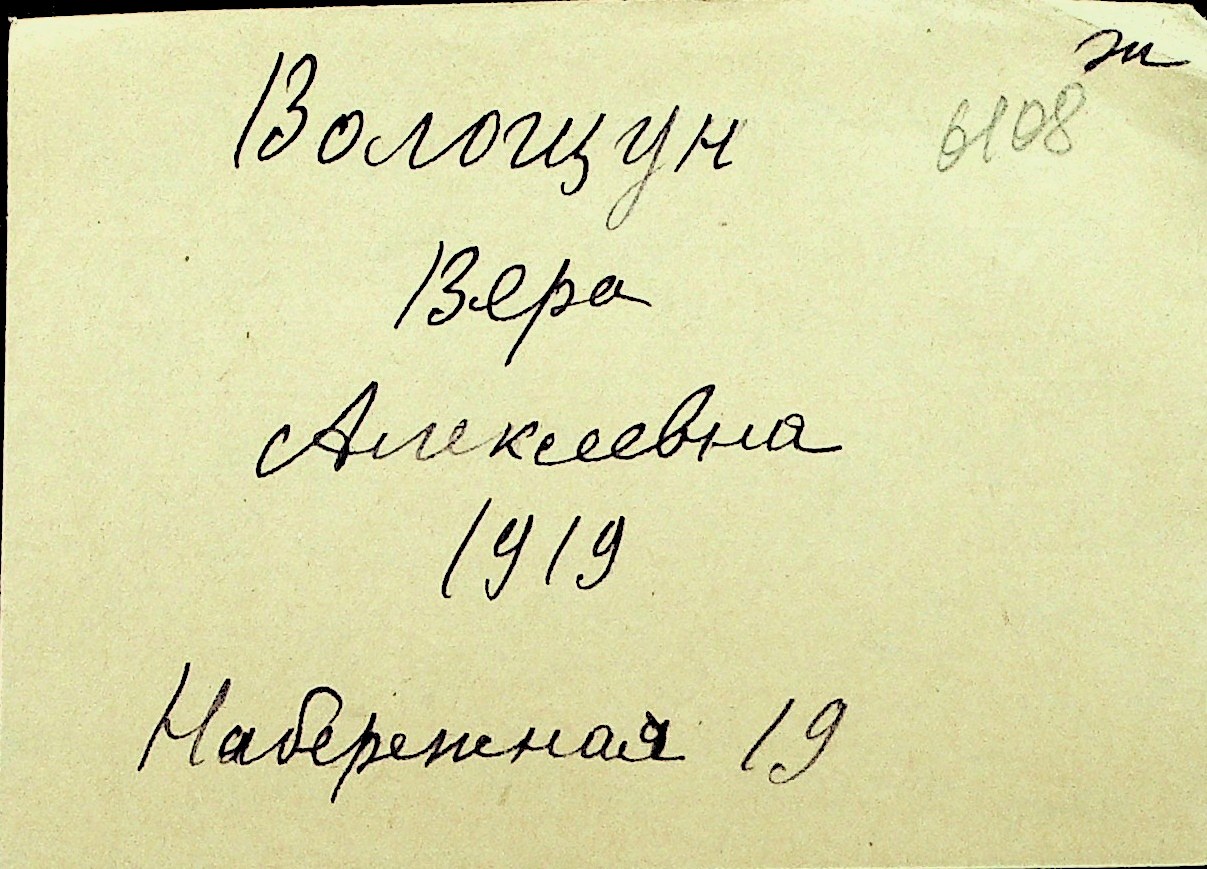 ж
6108
Волощун
Вера
Алексеевна
1919
Набережная 19